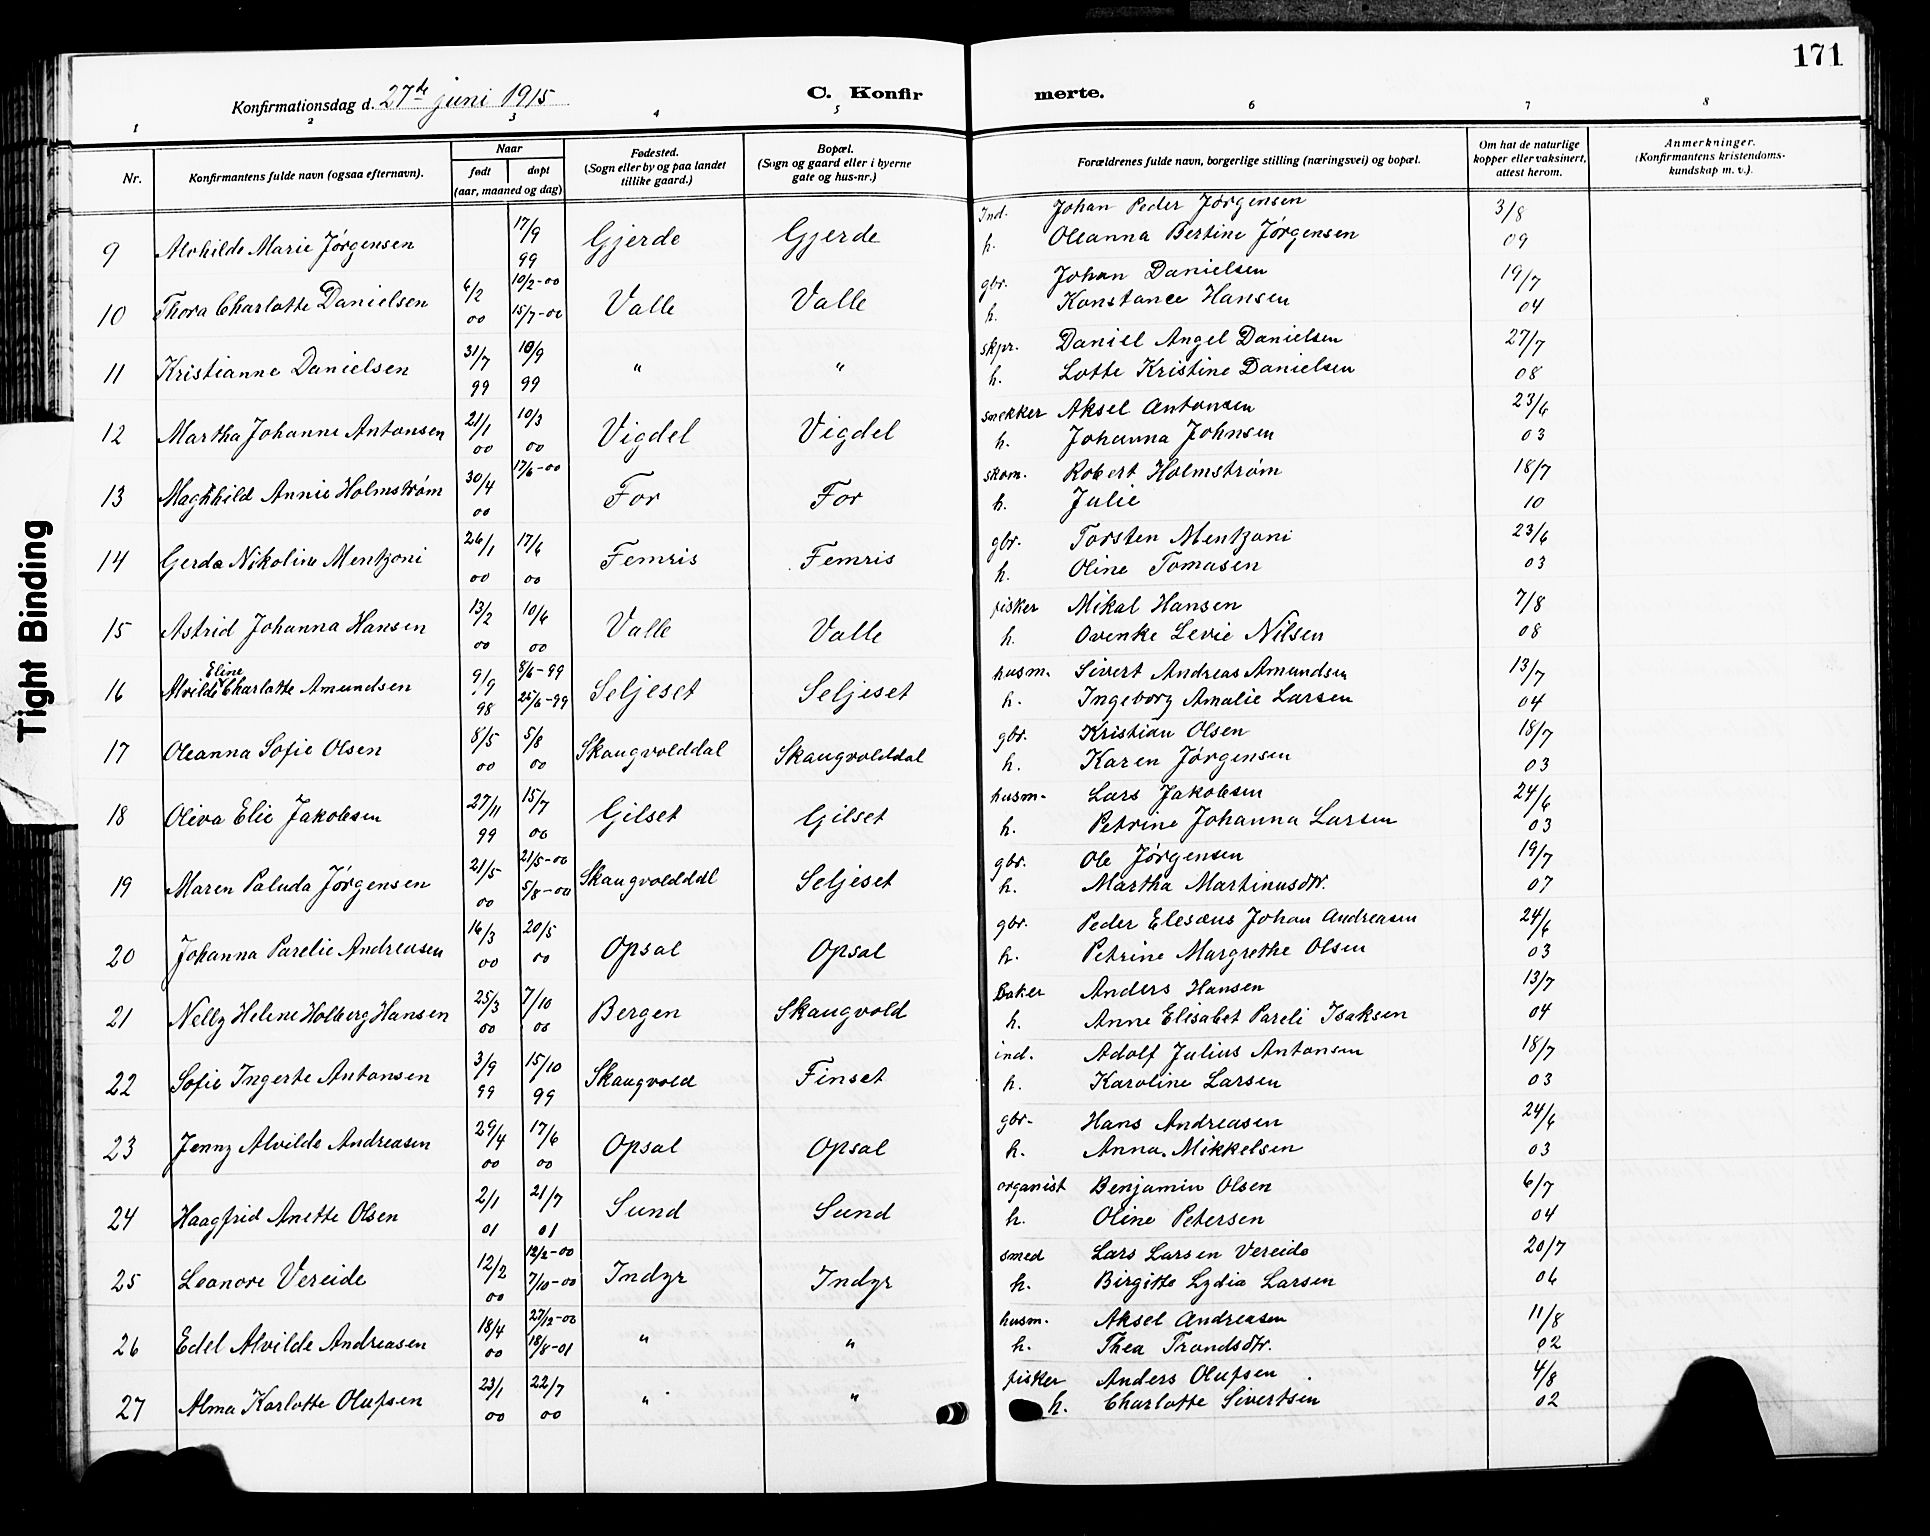 171
Konfirmationsdag d. 27de juni 1915 C. Konfirmerte.
1 2 3 4 5 6 7 8
Nr. Konfirmantens fulde navn (ogsaa efternavn). Naar født døpt (aar, maaned og dag) Fødested. (Sogn eller by og paa landet tillike gaard.) Bopæl. (Sogn og gaard eller i byerne gate og hus-nr.) Forældrenes fulde navn, borgerlige stilling (næringsvei) og bopæl. Om hat de naturlige kopper eller vaksinert, attest herom. Anmerkninger. (Konfirmantens kristendoms-kundskap m. v.).
9 Alvhilde Marie Jørgensen 17/9 99 Gjerde Gjerde Ind. Johan Peder Jørgensen 3/8
h. Oleanna Bertine Jørgensen 09
10 Thora Charlotte Danielsen 6/2 00 10/2-00 15/7-00 Valle Valle gbr. Johan Danielsen 19/7
h. Konstance Hansen 04
11 Kristianne Danielsen 31/7 99 10/9 99 " " skpr. Daniel Angel Danielsen 27/7
h. Lotte Kristine Danielsen 08
12 Martha Johanne Antonsen 21/1 00 10/3 00 Vigdel Vigdel snekker Aksel Antonsen 23/6
h. Johanna Johnsen 03
13 Maghhild Annie Holmstrøm 30/4 00 17/6-00 For For skom. Robert Holmstrøm 18/7
h. Julie 10
14 Gerda Nikoline Mentzoni 26/1 00 17/6 00 Femris Femris gbr. Torsten Mentzoni 23/6
h. Oline Tomasen 03
15 Astrid Johanna Hansen 13/2 00 10/6 00 Valle Valle fisker Mikal Hansen 7/8
h. Ovenke Levie Nilsen 08
16 Alvilde Eline Charlotte Amundsen 9/9 98 8/6-99 25/6-99 Seljeset Seljeset husm. Sivert Andreas Amundsen 13/7
h. Ingeborg Amalie Larsen 04
17 Oleanna Sofie Olsen 8/5 00 5/8 00 Skaugvolddal Skaugvolddal gbr. Kristian Olsen 18/7
h. Karen Jørgensen 03
18 Oliva Elie Jakobsen 27/11 99 15/7 00 Gilset Gilset husm. Lars Jakobsen 24/6
h. Petrine Johanna Larsen 03
19 Maren Paluda Jørgensen 21/5 00 21/5-00 5/8-00 Skaugvolddal Seljeset gbr. Ole Jørgensen 19/7
h. Martha Martinusdtr. 07
20 Johanna Parelie Andreasen 16/3 00 20/5 00 Opsal Opsal gbr. Peder Elesæus Johan Andreasen 24/6
h. Petrine Margrethe Olsen 03
21 Nelly Helene Holberg Hansen 25/3 00 7/10 00 Bergen Skaugvold Baker Anders Hansen 13/7
h. Anne Elisabet Pareli Isaksen 04
22 Sofie Ingerte Antonsen 3/9 99 15/10 99 Skaugvold Finset ind. Adolf Julius Antonsen 18/7
h. Karoline Larsen 03
23 Jenny Alvilde Andreasen 29/4 00 17/6 00 Opsal Opsal gbr. Hans Andreasen 24/6
h. Anna Mikkelsen 03
24 Haagfrid Anette Olsen 2/1 01 21/7 01 Sund Sund organist Benjamin Olsen 6/7
h. Oline Petersen 04
25 Leonore Vereide 12/2 00 12/2-00 7/10-00 Indyr Indyr smed Lars Larsen Vereide 20/7
h. Birgitte Lydia Larsen 06
26 Edel Alvilde Andreasen 18/4 00 27/12-00 18/8-01 " " husm. Aksel Andreasen 11/8
h. Thea Trondsdtr. 02
27 Alma Karlotte Olufsen 23/1 00 22/7 00 " " fisker Anders Olufsen 4/8
h. Charlotte Sivertsen 02
Tight Binding